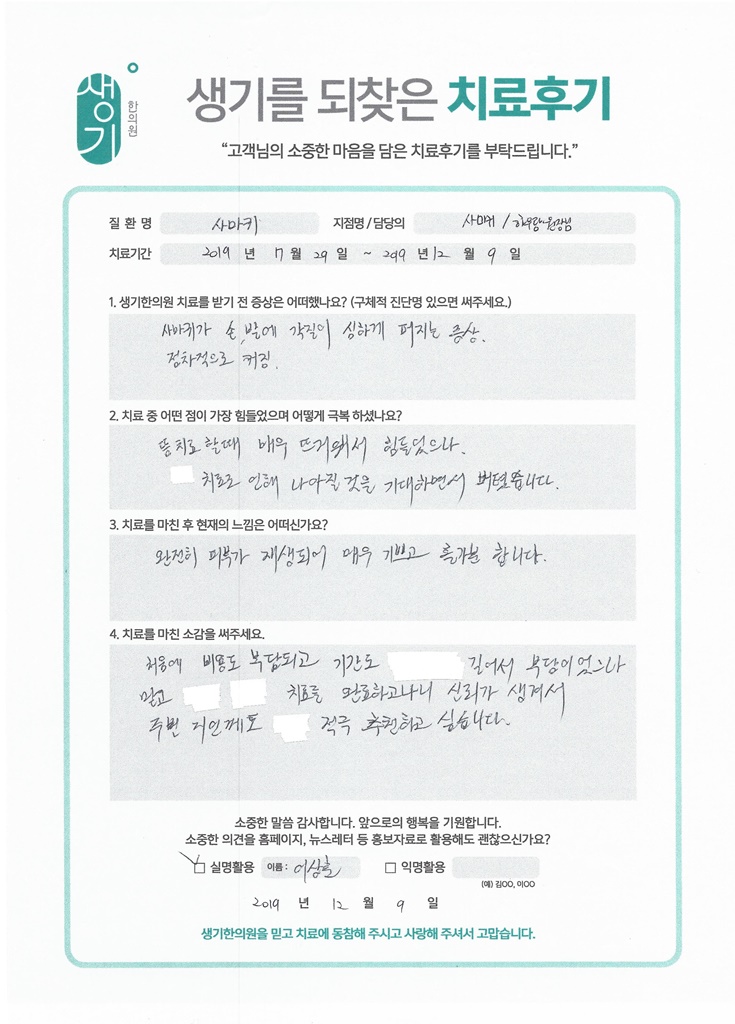 생기 한의원
생기를 되찾은 치료후기
“고객님의 소중한 마음을 담은 치료후기를 부탁드립니다.”
질 환 명 사마귀 지점명 / 담당의 사마귀 / 원장님
치료기간 2019 년 7 월 29 일 ~ 2019 년 12 월 9 일
1. 생기한의원 치료를 받기 전 증상은 어떠했나요? (구체적 진단명 있으면 써주세요.)
사마귀가 손, 발에 각질이 심하게 퍼지는 증상.
점차적으로 커짐.
2. 치료 중 어떤 점이 가장 힘들었으며 어떻게 극복 하셨나요?
뜸치료 할때 매우 뜨거워서 힘들었으나.
치료로 인해 나아질 것을 기대하면서 버텼습니다.
3. 치료를 마친 후 현재의 느낌은 어떠신가요?
완전히 피부가 재생되어 매우 기쁘고 홀가분 합니다.
4. 치료를 마친 소감을 써주세요.
처음에 비용도 부담되고 기간도 길어서 부담이었으나
믿고 치료를 완료하고나니 신뢰가 생겨서
주변 지인께도 적극 추천하고 싶습니다.
소중한 말씀 감사합니다. 앞으로의 행복을 기원합니다.
소중한 의견을 홈페이지, 뉴스레터 등 홍보자료로 활용해도 괜찮으신가요?
실명활용 이름 : 익명활용
(예) 김OO, 이OO
2019 년 12 월 9 일
생기한의원을 믿고 치료에 동참해 주시고 사랑해 주셔서 고맙습니다.